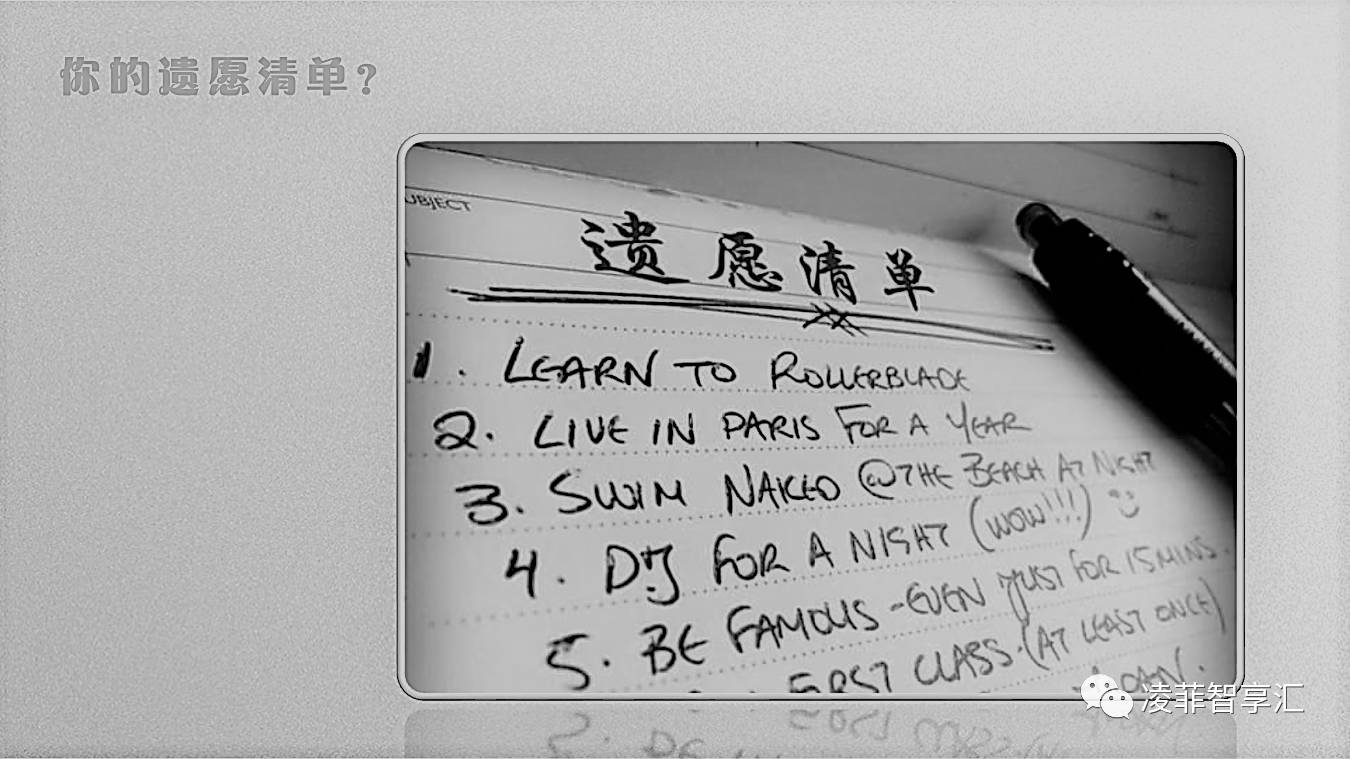 你的遗愿清单?
UBJECT
遗愿清单
1. LEARN TO ROLLERBLADE
2. LIVE IN PARIS FOR A YEAR
3. SWIM NAKED @ THE BEACH AT NIGHT
4. DJ FOR A NIGHT (WOW!!!)
5. BE FAMOUS - EVEN JUST FOR 15 MINS.
FIRST CLASS. (AT LEAST ONCE)
凌菲智享汇